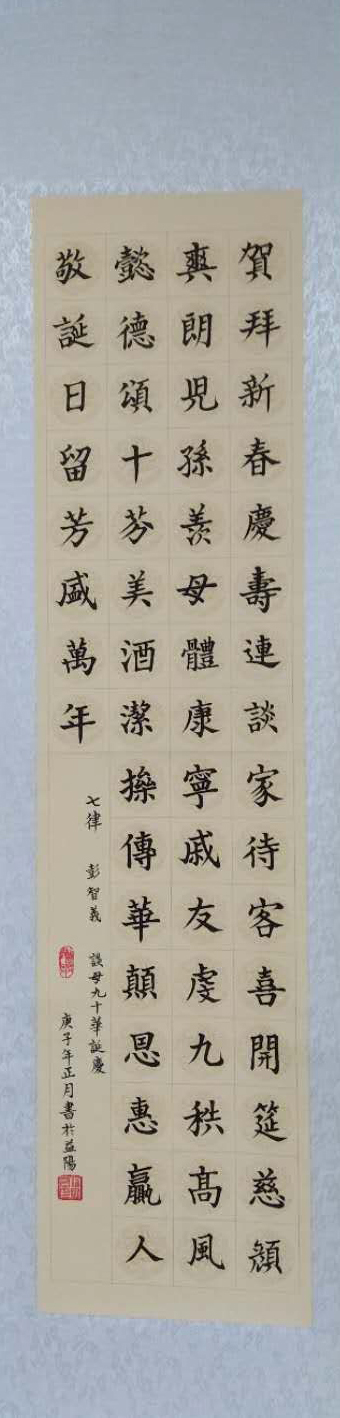 賀拜新春慶壽連談家待客喜開筵慈顏
爽朗兒孫羨母體康寧戚友虔九秩高風
懿德頌十芬美酒潔操傳華顛恩惠贏人
敬誕日留芳盛萬年
七律 彭智義 談母九十華誕慶
庚子年正月書於益陽